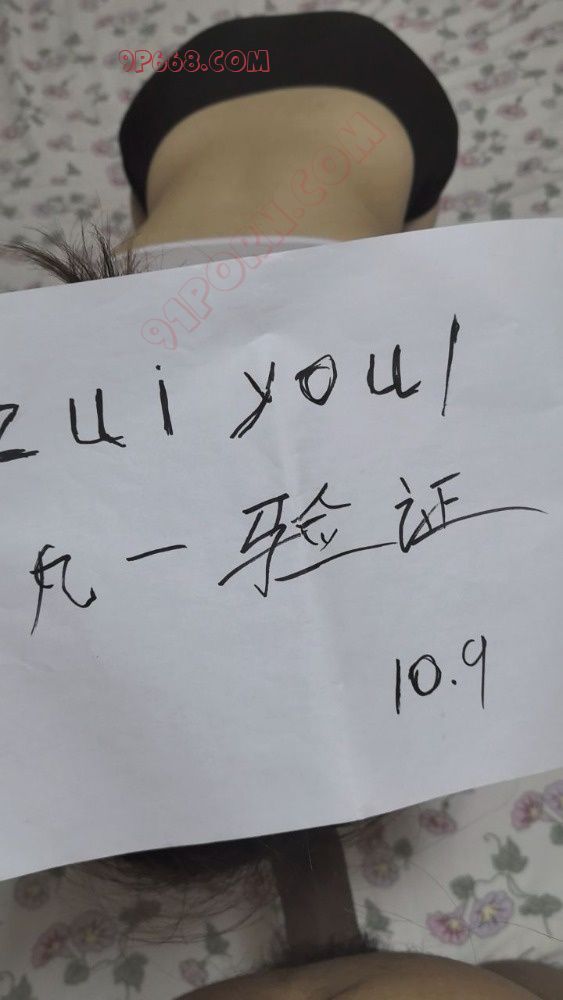 9P668.COM
91PORN.COM
zui you1
九一验证
10.9